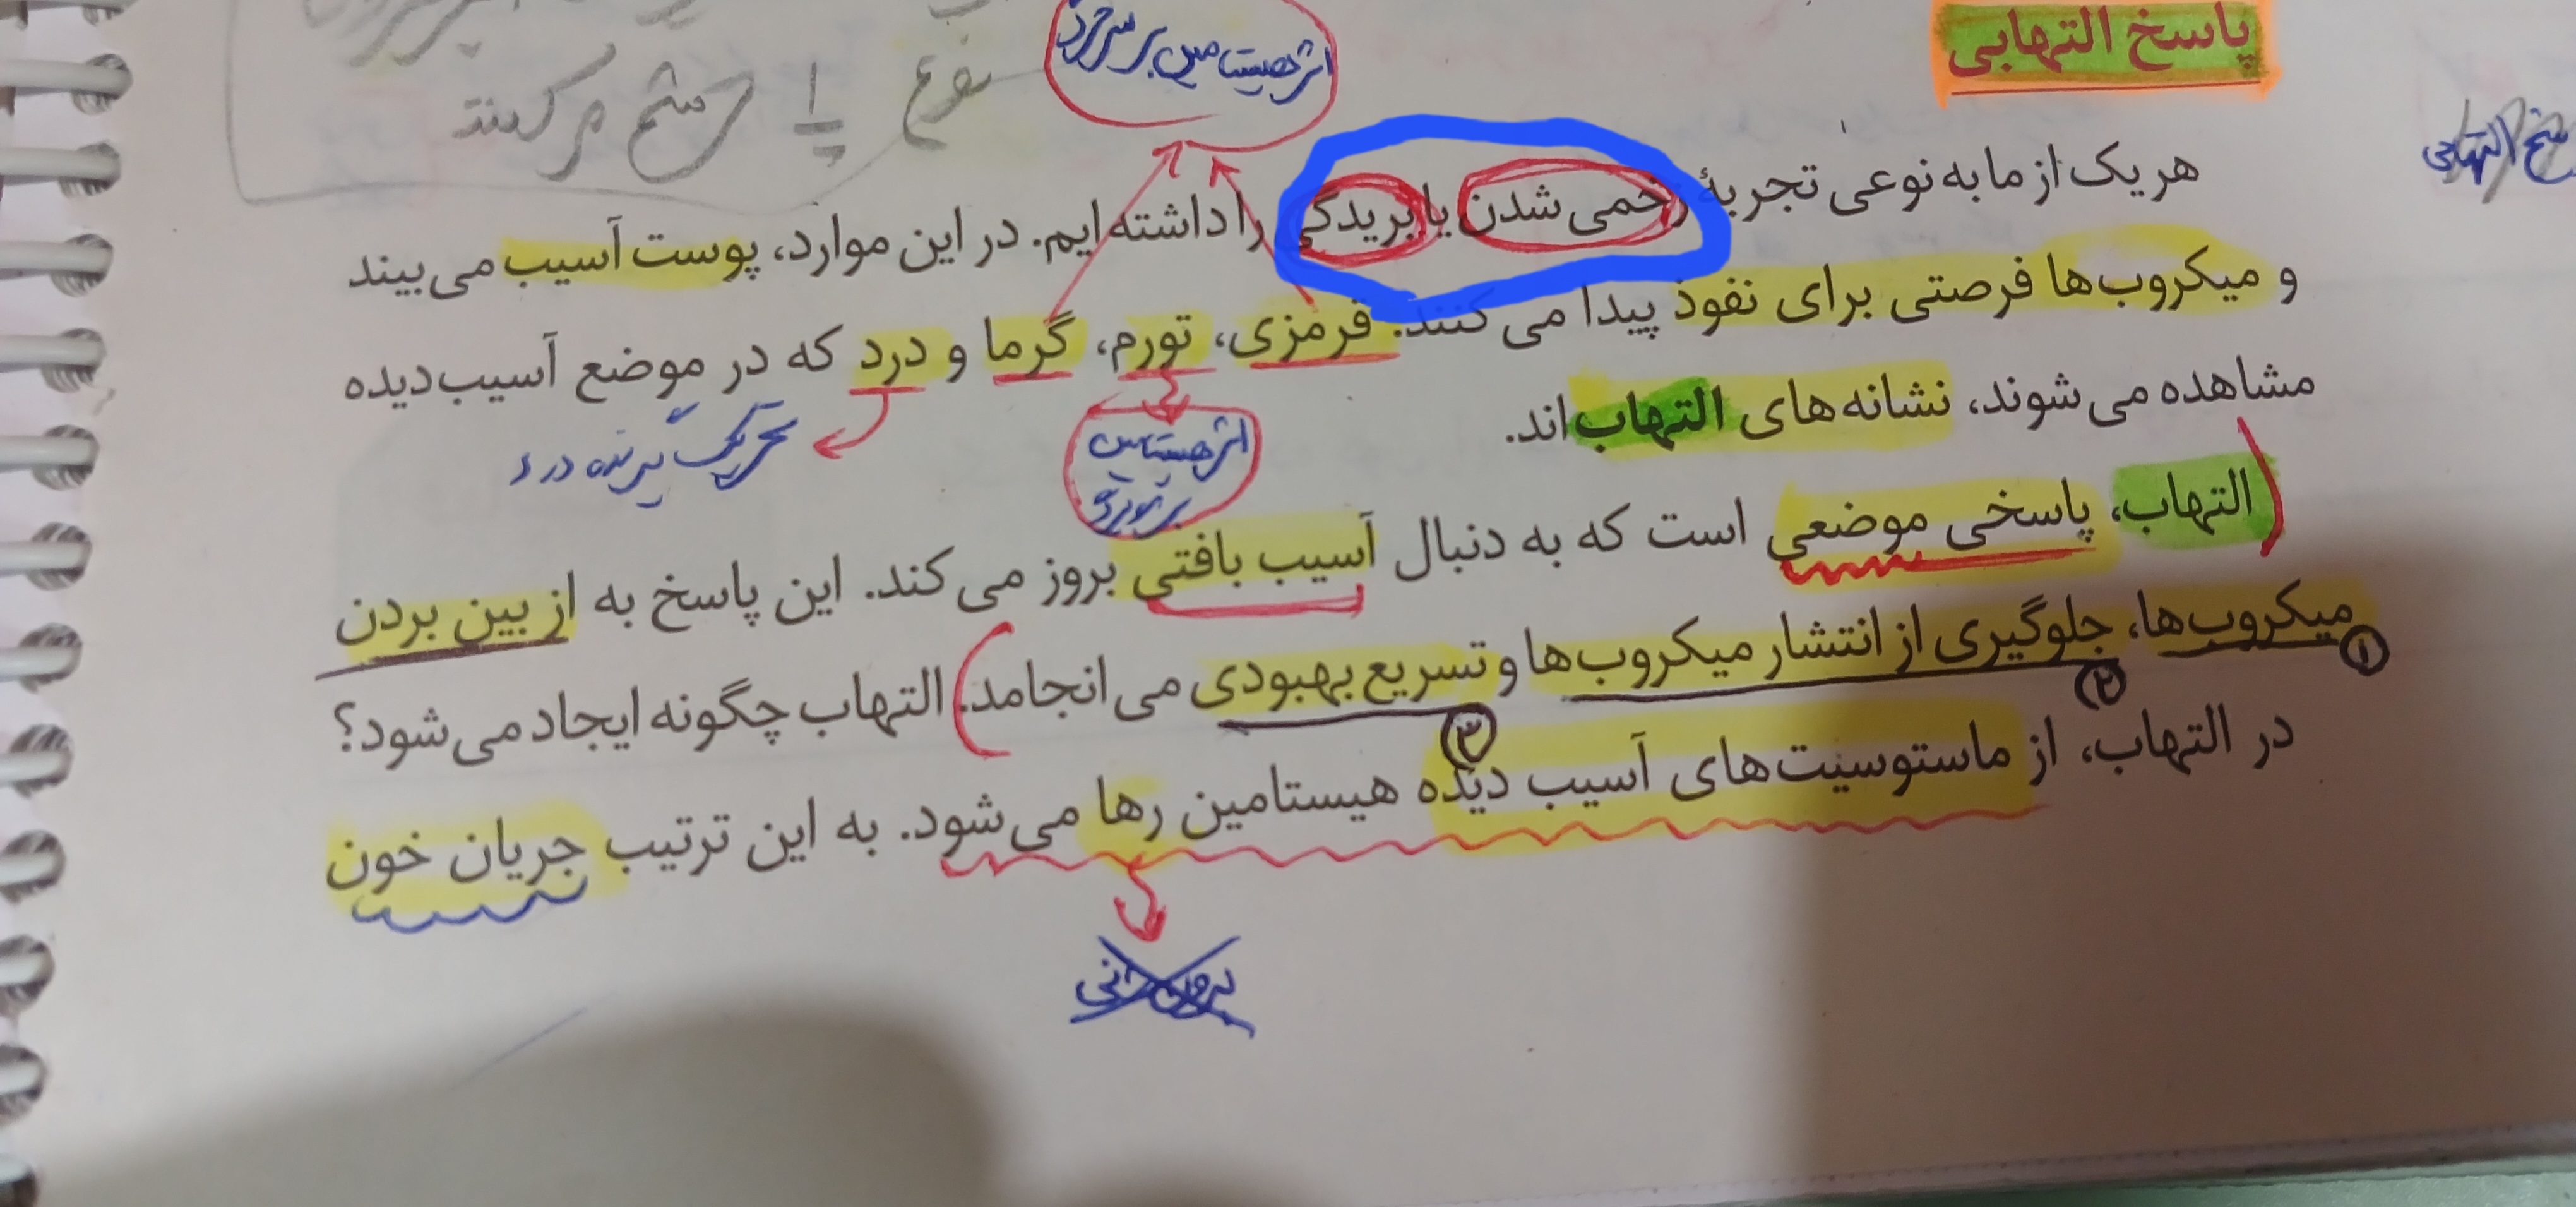 پاسخ التهابی
اثر هیستامین بر سرخرگ
نوع 1 ترشح می‌کنند
هر یک از ما به نوعی تجربهٔ زخمی شدن یا بریدگی را داشته‌ایم. در این موارد، پوست آسیب می‌بیند
و میکروب‌ها فرصتی برای نفوذ پیدا می‌کنند. قرمزی، تورم، گرما و درد که در موضع آسیب‌دیده
مشاهده می‌شوند، نشانه‌های التهاب‌اند.
تحریک گیرنده درد
اثر هیستامین
التهاب، پاسخی موضعی است که به دنبال آسیب بافتی بروز می‌کند. این پاسخ به از بین بردن
میکروب‌ها، جلوگیری از انتشار میکروب‌ها و تسریع بهبودی می‌انجامد. التهاب چگونه ایجاد می‌شود؟
۱ ۲ ۳
در التهاب، از ماستوسیت‌های آسیب دیده هیستامین رها می‌شود. به این ترتیب جریان خون